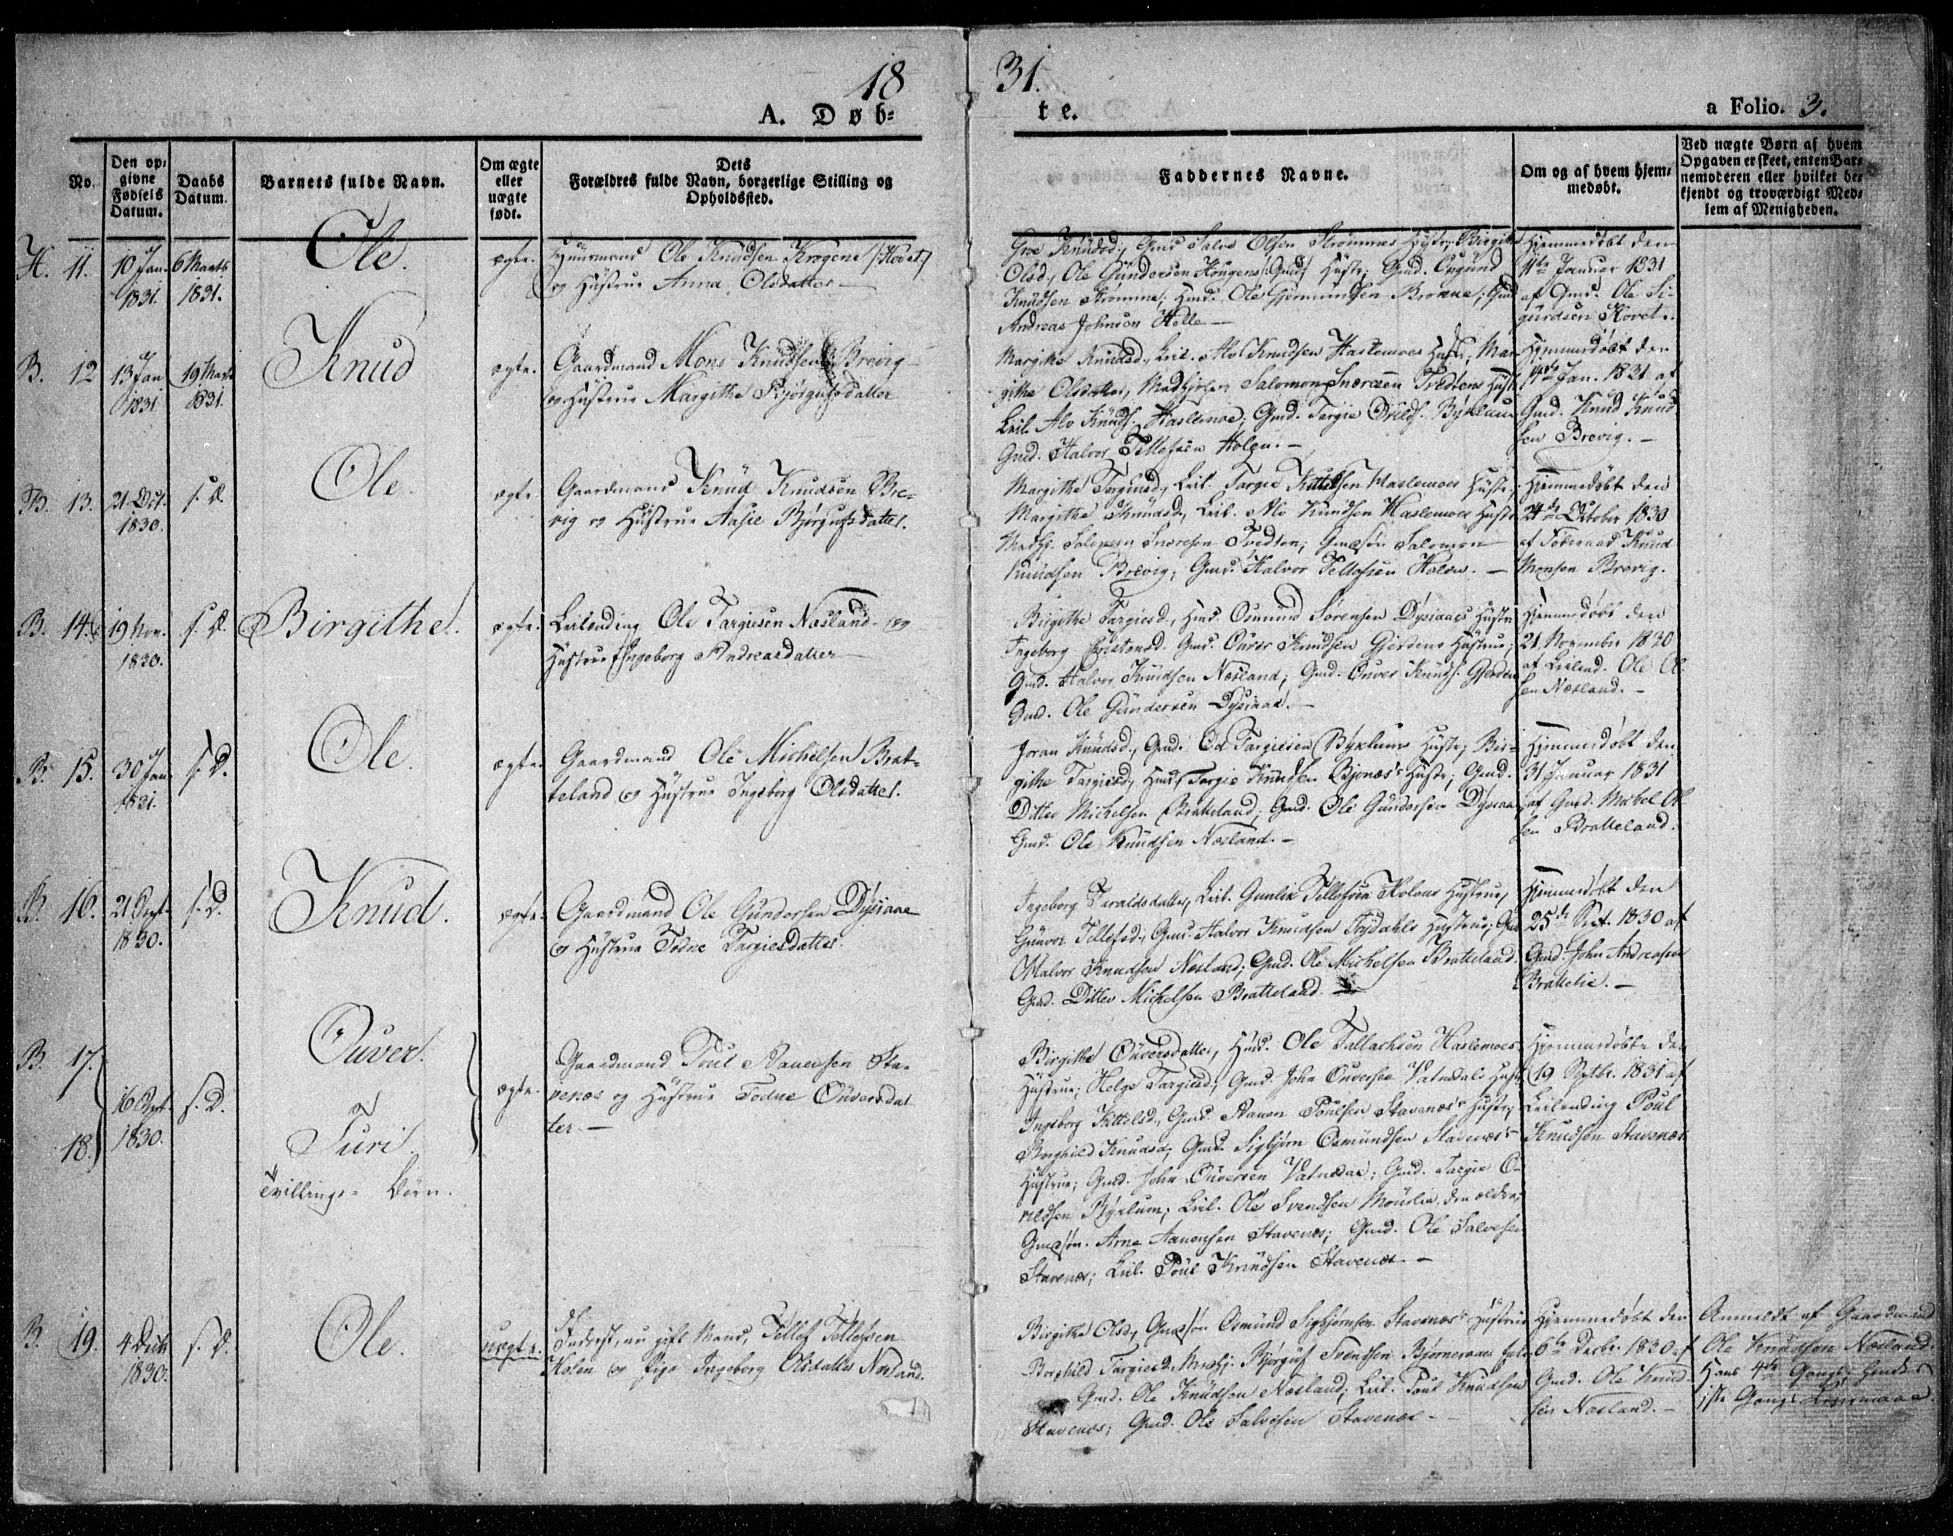 18 31.
A. Døb= te.
a Folio. 3.
No.
Den op=
givne
Fødsels
Datum.
Daabs
Datum.
Barnets fulde Navn.
Om ægte
eller
uægte
født.
Dets
Forældres fulde Navn, borgerlige Stilling og
Opholdssted.
Faddernes Navne.
Om og af hvem hjem=
medøbt.
Ved uægte Børn af hvem
Opgaven er skeet, enten Bar=
nemoderen eller hvilket be=
kjendt og troværdigt Med=
lem af Menigheden.
H. 11.
10 Jan
1831.
6 Marts
1831.
Ole.
ægte.
Huusmand Ole Knudsen Krogene /:Hovet:/
og Hustrue Anna Olsdatter —
Groe Knudsd., Gmd Salve Olsen Strømmes Hustr; Birgithe
Olsd., Ole Gundersen Hougens Hustr; Gmd.
Knudsen Strømme; Ole Gjermundsen ; Gmd
Andreas Johnson Helle —
Hjemmedøbt den
11te Januar 1831
af Gmd. Ole Si=
gurdsen Hovet.
B. 12
13 Jan
1831
19 Marts
1831.
Knud
ægte.
Gaardmand Mons Knudsen Brevig
og Hustrue Margithe Bjørgufsdatter
Margithe Knudsd., Leil. Alv Knudsen Haslemoes Hustr; Mar
githe Olsdatter, Salomon Knudsen Tvedtens Hustr
Leil. Alv Knuds. Haslemoe; Gmd. Targie Byklum
Gmd. Halvor Tellefsen Holen. —
Hjemmedøbt den
14de Jan. 1831 af
Gmd. Knud Knud
sen Brevig. —
B. 13.
21 Oct.
1830.
s. D.
Ole.
ægte.
Gaardmand Knud Knudsen Bre=
vig og Hustrue Aasie Bjørgufsdatter.
Margithe Targiesd., Leil. Targie Kittelsen Haslemoes Hustr;
Margithe Knudsd., Leil. Alv Knudsen Haslemoes Hustr
Salomon Tvedten; Gmdsøn Salomon
Knudsen Brevig; Gmd. Halvor Tellefsen Holen. —
Hjemmedøbt den
24de Oktober 1830
af Knud
Monsen Brevig.
B. 14.
19 Nov.
1830.
s. D.
Birgithe.
ægte.
Leilending Ole Targiesen Næsland og
Hustrue Ingeborg Andreasdatter
Birgithe Targiesd., Osmund Sørensen Dysiaaes Hustr;
Ingeborg Gmd. Ouver Knudsen Gjerdens Hustrue;
Gmd. Halvor Knudsen Næsland; Gmd. Ouver Knuds. Gjerden
Gmd. Ole Gundersen Dysiaae. —
Hjemmedøbt den
21 November 1830
af Leilend. Ole Ol
sen Næsland. —
B. 15.
30 Jan
1831.
s. D.
Ole.
ægte.
Gaardmand Ole Michelsen Brat=
teland og Hustrue Ingeborg Olsdatter.
Joran Knudsd., Gmd. Targiesen Byklums Hustr; Bir=
githe Targiesd., Targie Knudsen Bjønæs's Hustr; Gmd.
Ditlev Michelsen Bratteland; Gmd. Ole Gundersen Dysiaae
Gmd. Ole Knudsen Næsland. —
Hjemmedøbt den
31 Januar 1831
af Gmd. Michel Ol
sen Bratteland.
B. 16.
21 Sept.
1830.
s. D.
Knud.
ægte.
Gaardmand Ole Gundersen Dysiaae
og Hustrue Todne Targiesdatter
Ingeborg Taraldsdatter, Leil. Gunleik Tellefsen Holens Hustrue;
Gunvor Tellefsd., Gmd. Halvor Knudsen Trydahls Hustrue; Gmd
Halvor Knudsen Næsland; Gmd. Ole Michelsen Bratteland.
Gmd. Ditlev Michelsen Bratteland. —
Hjemmedøbt den
25de Sept. 1830 af
Gmd. John Andreasen
Brattelie. —
B. 17.
18.
16 Sept.
1830.
s. D.
Ouver.
Turi
Tvillinge= Børn.
ægte.
Gaardmand Poul Aanensen Sta=
venæs og Hustrue Todne Ouversdat
ter. —
Birgithe Ouversdatter, Ole Tallachsen Haslemoes
Hustrue; Helge Targiesd., Gmd. John Ouversen Vatnedals Hustr
Ingeborg Kittelsd., Gmd. Aanen Poulsen Stavenæs's Hustr;
Borghild Knudsd., Gmd. Sigbjørn Osmundsen Stavenæs's
Hustrue; Gmd. John Ouversen Vatnedal; Gmd. Targie O=
vildsen Byklum; Leil. Ole Svendsen Mourlie, den ældre;
Gmdsøn. Arne Aanensen Stavenæs; Gmd. Ole Salvesen
Stavenæs; Leil. Poul Knudsen Stavenæs —
Hjemmedøbte den
19 Septbr. 1831 af
Leilending Poul
Knudsen Stavenæs
B. 19.
4 Decbr
1830.
s. D.
Ole.
uægte.
Inderst, nu gift Mand, Tellef Tellefsen
Holen og Pige Ingeborg Olsdatter Næsland.
Birgithe Olsd., Gmdsøn Osmund Sigbjørnsen Stavenæs's Hustrue
Borghild Targiesd., Bjørguf Svendsen Bjørneraaes
Gmd. Ole Knudsen Næsland; Leil. Poul Knudsen
Stavenæs; Gmd. Ole Salvesen Stavenæs —
Hjemmedøbt den
6te Decbr. 1830 af
Gmd. Ole Knud
sen Næsland. —
Anmeldt af Gaardmand
Ole Knudsen Næsland.
Hans 4de Gang, hendes
1ste Gangs Leiermaal.